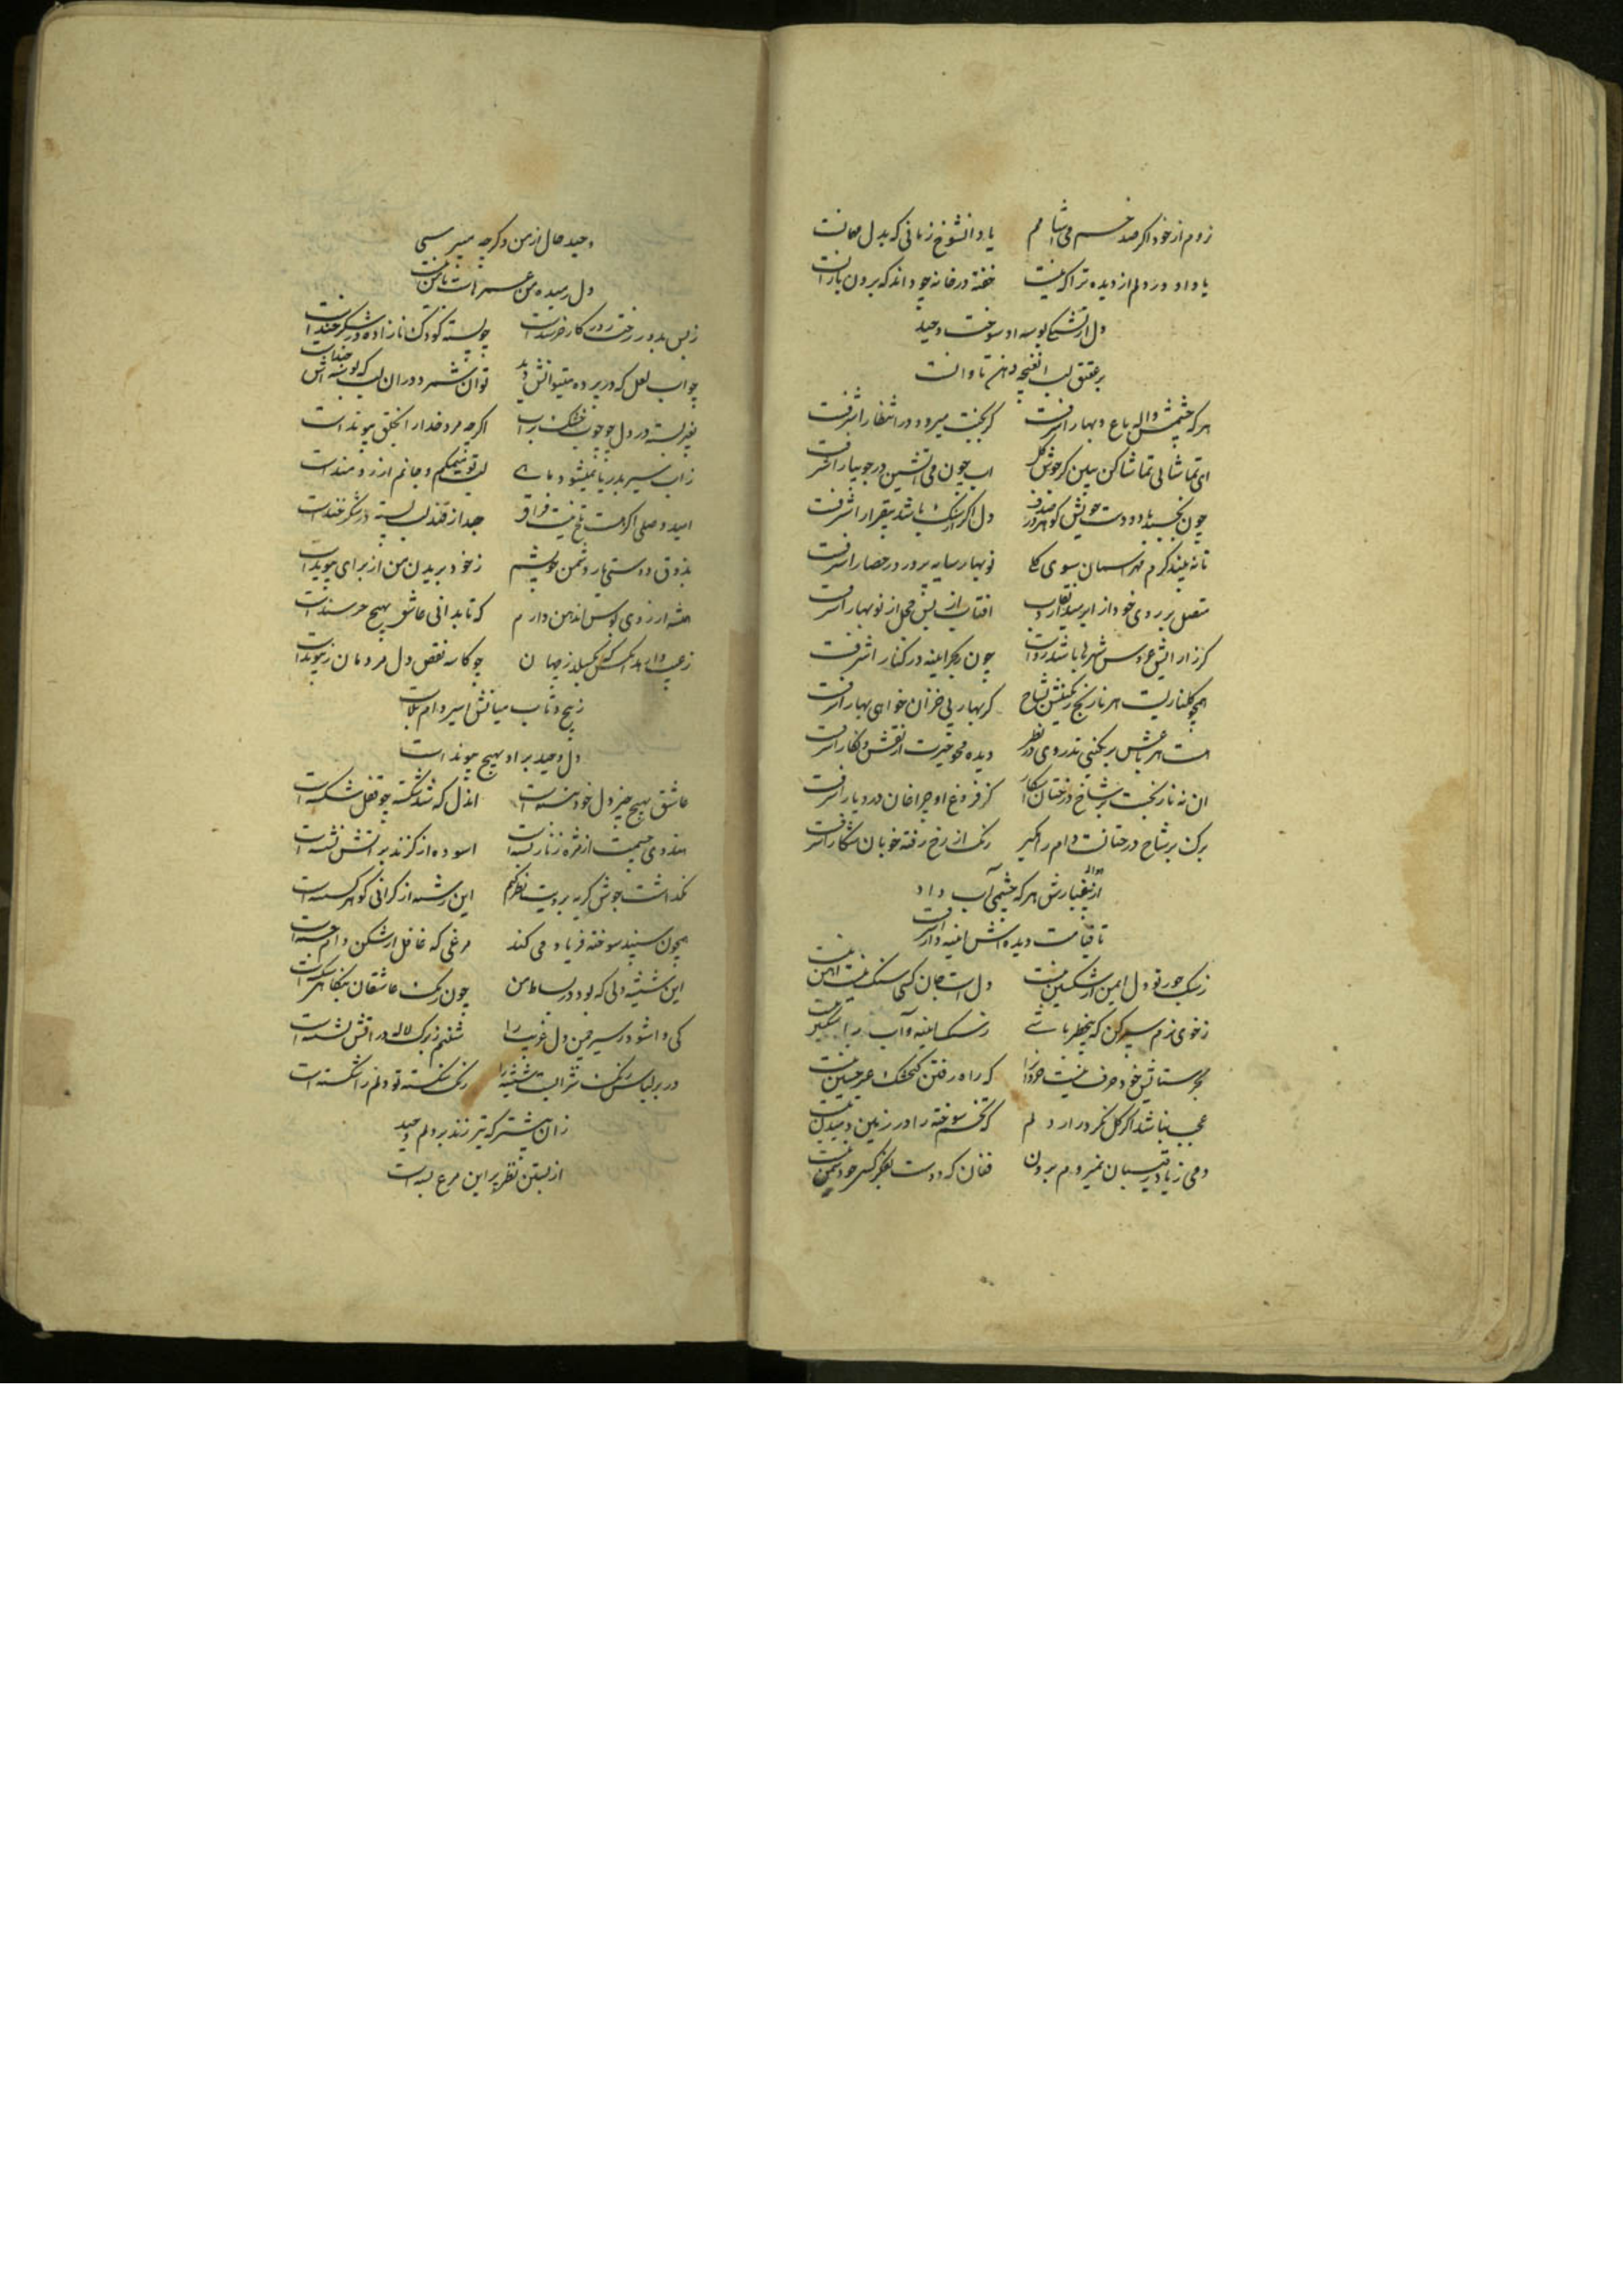 نروم از خود اگر صد خم می آشامم یاد آن شوخ زمانی که بدل مهمانست
یاد او در دلم از دیده تر آگه نیست خفته در خانه چه داند که برون بارانست
دل از آتشکی بوسه او سوخت وحید
بر عقیق لب آن غنچه دهن تاوانست
هر که چشمش واله باغ و بهار اشرفست گر بجنت میرود در انتظار اشرفست
ای تماشایی تماشا کن ببین کز جوش گل آب چون می آتشین در جویبار اشرفست
چون نچسبد با دو دست خویش گوهر در صدف دل اگر از سنگ باشد بیقرار اشرفست
تا نه بیند گرم مهر آسمان سوی نو بهار سایه پرور در حصار اشرفست
متصل بر روی خود از ابر میدارد نقاب آفتاب از بس خجل از نوبهار اشرفست
عروس شهرها باشد رواست چون که آینه در کنار اشرفست
همچو گلناریست هر نارنج رنگینش بشاخ گر بهار بی خزان خواهی بهار اشرفست
هست هر باغش برنگینی تذروی در نظر دیده محو حیرت از نقش و نگار اشرفست
آن نه نارنجست بر شاخ درختان آشکار کز فروغ او چراغان در دیار اشرفست
برگ بر شاخ درختانست دام رنگ از رخ رفته خوبان شکار اشرفست
از غبارش هر که چشمی آب داد
تا قیامت دیده اش آینه دار اشرفست
ز سنگ جور تو دل ایمن از شکستن نیست دل است جان کسی سنگ نیست آهن نیست
ز خوی نرم سپر کن که بیخطر باشی ز سنگ آینه آب را شکستن نیست
بجز ستایش خود حرف نیست خودرا که راه رفتن گنجشک غیر جستن نیست
عجب نباشد اگر گل نکرد راز دلم که تخم سوخته را در زمین دمیدن نیست
دمی ز یاد رقیبان نمیروم بیرون فغان که دوست بفکر کسی چو دشمن نیست
وحید حال از من دگر چه میپرسی
دل رمیده من عمرهاست با من نیست
ز بس بدور رخت روزگار خرسند است چو پسته کودک نازاده در شکر خند است
جواب لعل که در پرده میتوانش دید توان شمرد در آن لب که بوسه اش چند است
بغیر بسته در دل چو چوب خشک بر آب اگر چه مرد خدا را بخلق پیوند است
ز آب سیر بدریا نمیشود ماهی لب تو میمکم و جانم آرزومند است
امید وصلی اگر هست تلخ نیست فراق جدا ز قند لب پسته در شکر خند است
بذوق دوستی یار دشمن خویشم ز خود بریدن من از برای پیوند است
همیشه آرزوی بوس از آن دهن دارم که تا بدانی عاشق بهیچ خرسند است
چو کاسه نقص دل مردمان ز پیوند است
ز پیچ و تاب میانش اسیر دام بلاست
دل وحید بر او بهیچ پیوند است
عاشق بهیچ چیز دل خود نبسته است آن دل که شد شکسته چو قفل شکسته است
هندوی چشم مست از مژه زنار بسته است آسوده از گزند بر آتش نشسته است
نگذاشت جوش گریه برویت نظر کنم این رشته از گرانی گوهر گسسته است
همچون سپند سوخته فریاد می کند مرغی که غافل از شکن دام جسته است
این شیشه دلی که بود در بساط من چون رنگ عاشقان بنگاهی شکسته است
کی وا شود ز سیر چمن دل غریب را شبنم ز برگ لاله در آتش نشسته است
در بر لباس رنگ شراب است شیشه را رنگ شکسته تو دلم را شکسته است
زان پیشتر که تیر زند بر دلم وحید
از بستن نظر پر این مرغ بسته است